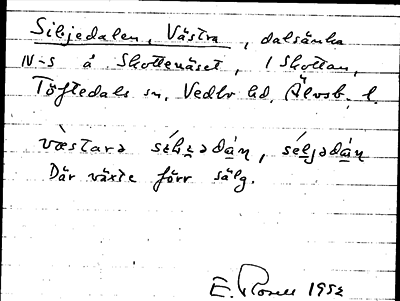 Siljedalen, Västra, dalsänka
N-S å Skottenäset, i Skottan,
Töftedals sn, Vedbo hd, Älvsb. l.
væstarə séljədán, séljədán
Där växte förr sälg.
E. Rosell 1952